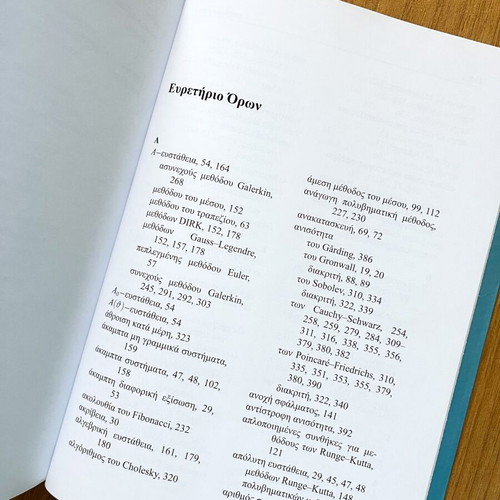 Ευρετήριο Όρων
A
A–ευστάθεια, 54, 164
ασυνεχούς μεθόδου Galerkin,
268
μεθόδου του μέσου, 152
μεθόδου του τραπεζίου, 63
μεθόδων DIRK, 152, 178
μεθόδων Gauss–Legendre,
152, 157, 178
πεπλεγμένης μεθόδου Euler,
57
συνεχούς μεθόδου Galerkin,
245, 291, 292, 303
A₀–ευστάθεια, 54
A(ϑ)–ευστάθεια, 54
άθροιση κατά μέρη, 323
άκαμπτα μη γραμμικά συστήματα,
159
άκαμπτα συστήματα, 47, 48, 102,
158
άκαμπτη διαφορική εξίσωση, 29,
53
ακολουθία του Fibonacci, 232
ακρίβεια, 30
αλγεβρική ευστάθεια, 161, 179,
180
αλγόριθμος του Cholesky, 320
άμεση μέθοδος του μέσου, 99, 112
ανάγωγη πολυβηματική μέθοδος,
227, 230
ανακατασκευή, 69, 72
ανισότητα
του Gårding, 386
του Gronwall, 19, 20
διακριτή, 88, 89
του Sobolev, 310, 334
διακριτή, 322, 339
των Cauchy–Schwarz, 254,
258, 259, 279, 284, 309–
311, 316, 338, 355, 356,
379, 380, 382
των Poincaré–Friedrichs, 310,
335, 351, 353, 355, 379,
380, 390
διακριτή, 322, 340
ανοχή σφάλματος, 141
αντίστροφη ανισότητα, 392
απλοποιημένες συνθήκες για με-
θόδους των Runge–Kutta,
121
απόλυτη ευστάθεια, 29, 45, 47, 48
μεθόδων Runge–Kutta, 148
πολυβηματικών
αριθμός